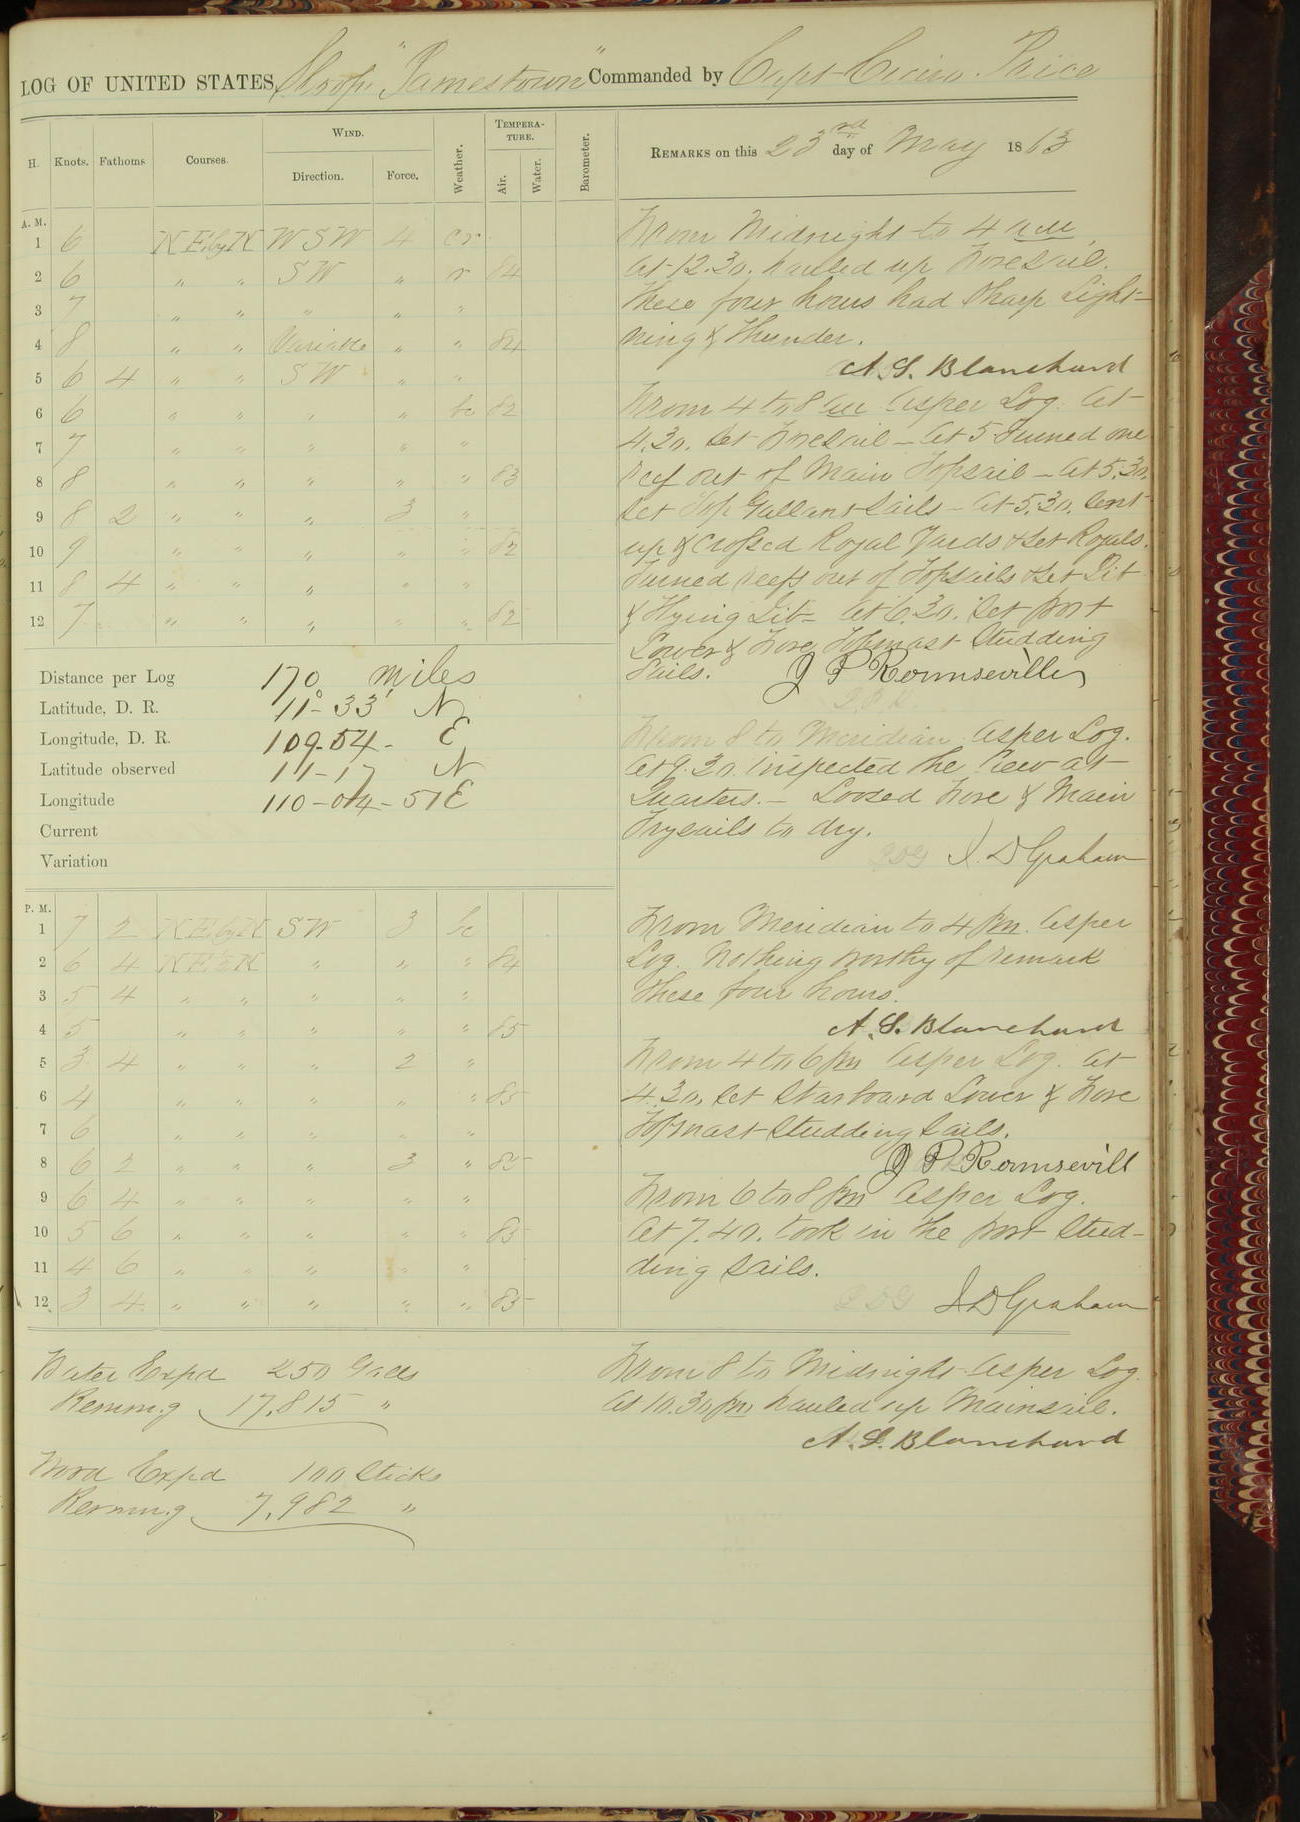 LOG OF UNITED STATES Sloop "Jamestown" Commanded by Capt Cicero Price
H. Knots. Fathoms Courses. WIND. Direction. Force. Weather. TEMPERATURE. Air. Water. Barometer. REMARKS on this 23rd day of May 1863
A. M.
1 6 NE by N WSW 4 cr
2 6 " " SW " r 84
3 7 " " " " "
4 8 " " Variable " " 84
5 6 4 " " SW " "
6 6 " " " " bc 82
7 7 " " " " "
8 8 " " " " " 83
9 8 2 " " " 3 "
10 9 " " " " " 82
11 8 4 " " " " "
12 7 " " " " " 82
From Midnight to 4 am.
At 12.30. hauled up Foresail.
These four hours had Sharp Light-
ning & Thunder.
A. S. Blanchard
From 4 to 8 am As per Log. At
4.30. Set Foresail – At 5 Turned one
reef out of Main Topsail – At 5.30.
Set Top Gallant Sails – At 5.30. Sent
up & crossed Royal Yards & Set Royals.
Turned reefs out of Topsails & Set Jib
& Flying Jib – At 6.30. Set port
Lower & Fore Topmast Studding
Sails. J P Rounseville
Distance per Log 170 miles
Latitude, D. R. 11°-33' N
Longitude, D. R. 109-54- E
Latitude observed 11-17 N
Longitude 110-04-51 E
Current
Variation
From 8 to Meridian As per Log.
At 9.30. inspected the Crew at
Quarters. – Loosed Fore & Main
Trysails to dry.
J. D Graham
P. M.
1 7 2 NE by N SW 3 bc
2 6 4 NE ½ N " " " 84
3 5 4 " " " " "
4 5 " " " " " 85
5 3 4 " " " 2 "
6 4 " " " " " 85
7 6 " " " " "
8 6 2 " " " 3 " 85
9 6 4 " " " " "
10 5 6 " " " " " 85
11 4 6 " " " " "
12 3 4 " " " " " 85
From Meridian to 4 pm. As per
Log. Nothing worthy of remark
these four hours.
A. S. Blanchard
From 4 to 6 pm As per Log. At
4.30. Set Starboard Lower & Fore
Topmast Studding Sails.
J P Rounsevill
From 6 to 8 pm As per Log.
At 7.40. took in the port Stud-
ding Sails.
J. D Graham
Water Expd 250 Galls
Remng 17,815 "
Wood Expd 100 Sticks
Remng 7,982 "
From 8 to Midnight As per Log.
At 10.30 pm hauled up Mainsail.
A. S. Blanchard